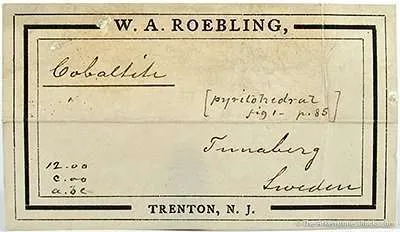 W. A. ROEBLING,
Cobaltite
[pyritohedral
fig 1- p. 85]
Tunaberg
12.00
Sweden
TRENTON, N. J.